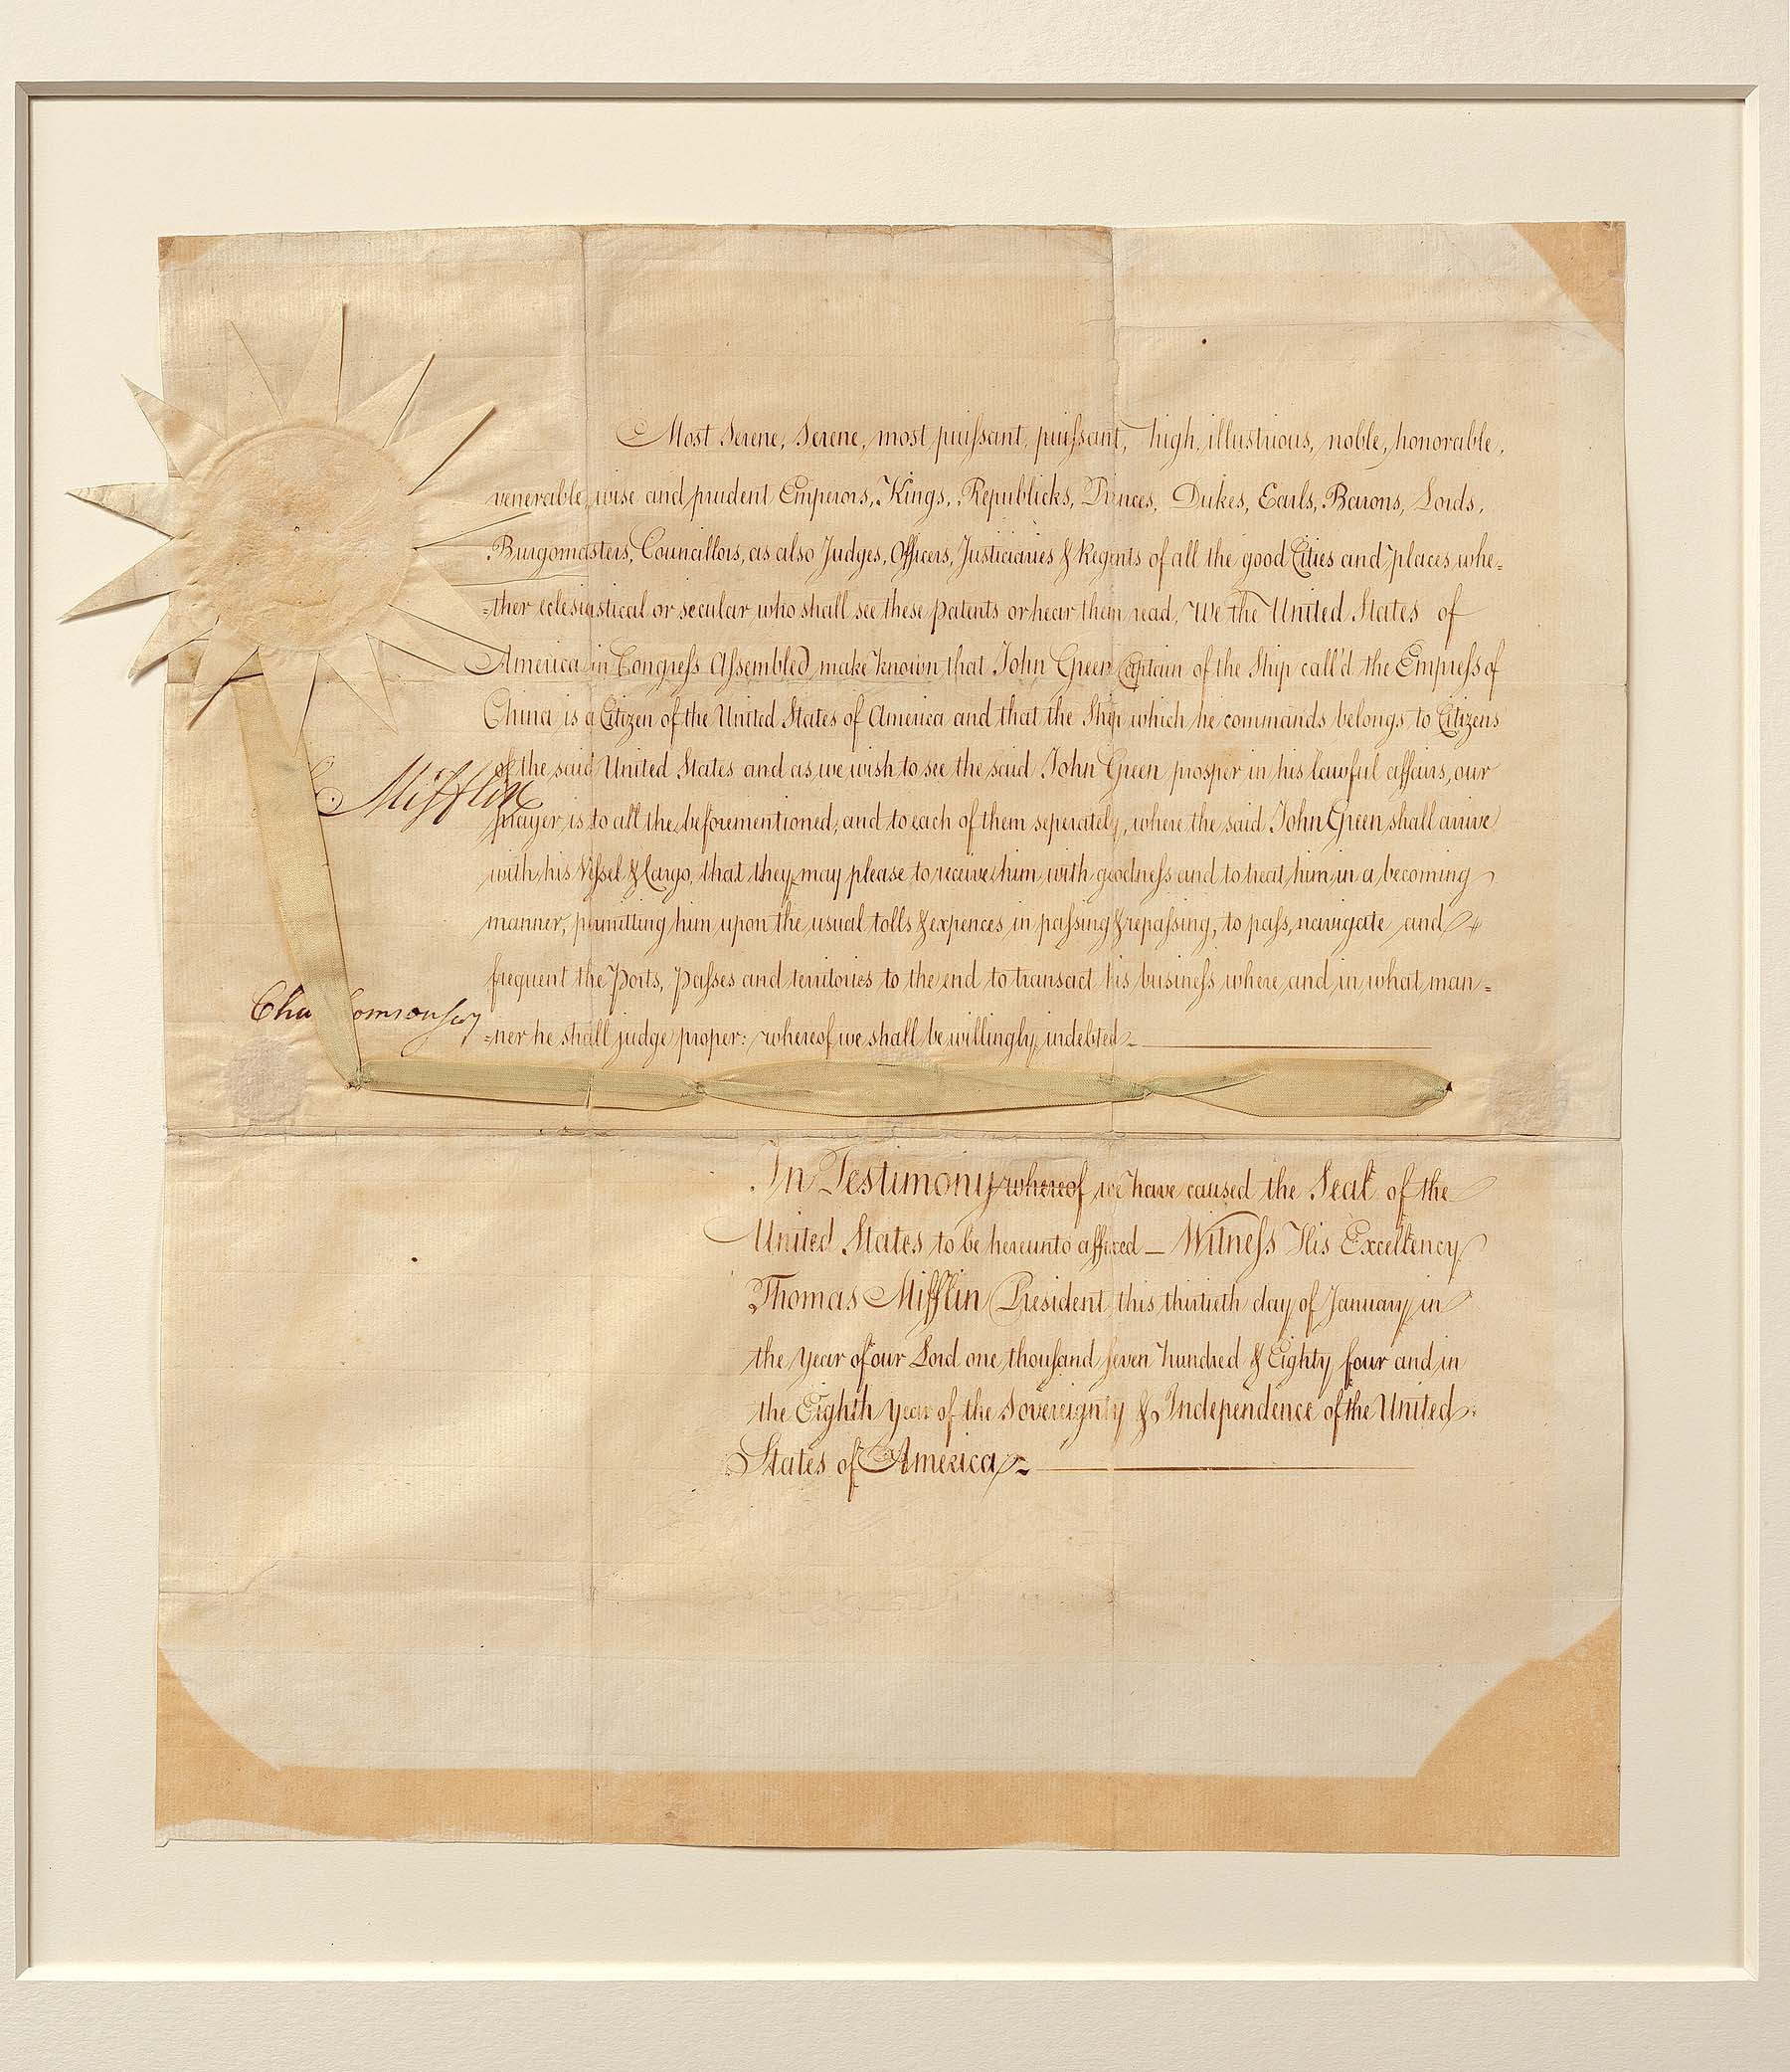 Most Serene, Serene, most puissant, puissant, high, illustrious, noble, honorable,
venerable, wise and prudent Emperors, Kings, Republicks, Princes, Dukes, Earls, Barons, Lords,
Burgomasters, Councillors, as also Judges, Officers, Justiciaries & Regents of all the good Cities and places whe=
=ther eclesiastical or secular who shall see these patents or hear them read, We the United States of
America in Congress Assembled make known that John Green Captain of the Ship call'd the Empress of
China is a Citizen of the United States of America and that the Ship which he commands belongs to Citizens
of the said United States and as we wish to see the said John Green prosper in his lawful affairs, our
Mifflin
prayer is to all the beforementioned, and to each of them seperately, where the said John Green shall arrive
with his Vessel & Cargo, that they may please to receive him with goodness and to treat him in a becoming
manner, permitting him upon the usual tolls & expences in passing & repassing, to pass, navigate and
frequent the Ports, Passes and territories to the end to transact his business where and in what man=
Cha omson Secy
=ner he shall judge proper: whereof we shall be willingly indebted
In Testimony whereof we have caused the Seal of the
United States to be hereunto affixed — Witness His Excellency
Thomas Mifflin President this thirtieth day of January in
the Year of our Lord one thousand seven hundred & Eighty four and in
the Eighth Year of the Sovereignty & Independence of the United
States of America